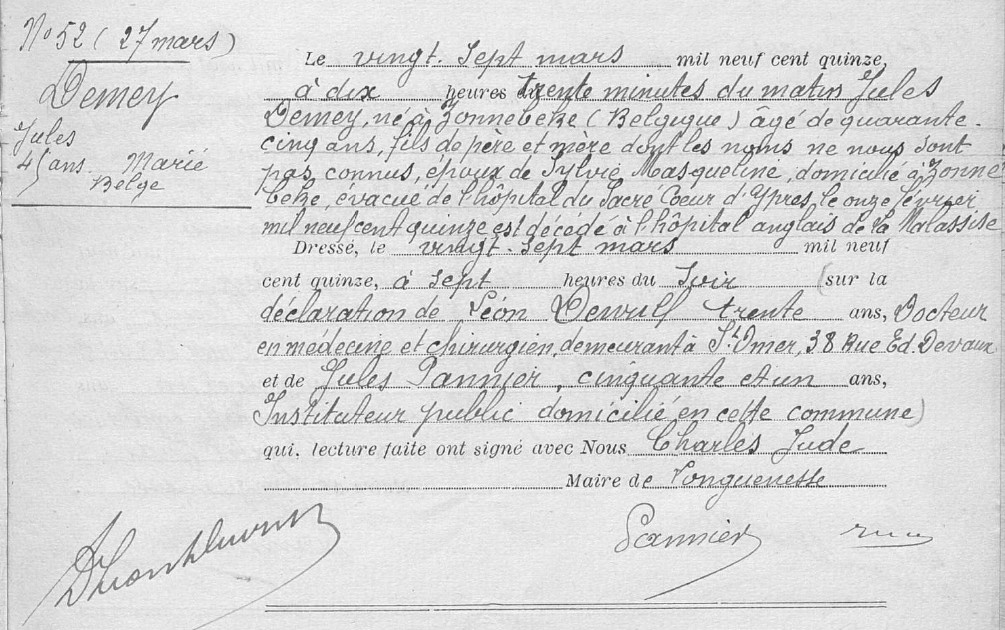 No 52 ( 27 mars )
Demey
Jules
45 ans. Marié
Belge
Le vingt. sept mars mil neuf cent quinze,
à dix heures du trente minutes du matin Jules
Demey, né à Zonnebeke ( Belgique ) âgé de quarante-
cinq ans, fils de père et mère dont les noms ne nous sont
pas connus, époux de Sylvie Masqueline, domicilié à Zonne
beke, évacué de l'hôpital du Sacré Coeur d'Ypres, le onze février
mil neuf cent quinze est décédé à l'hôpital anglais de la Malassise
Dressé, le vingt. sept mars mil neuf
cent quinze, à sept heures du soir (sur la
déclaration de Léon trente ans, Docteur
en médecine et chirurgien, demeurant à St Omer, 38 Rue Ed. Devaux
et de Jules Pannier, cinquante et un ans,
Instituteur public domicilié en cette commune)
qui, lecture faite ont signé avec Nous Charles Jude
Maire de Longuenesse
Pannier